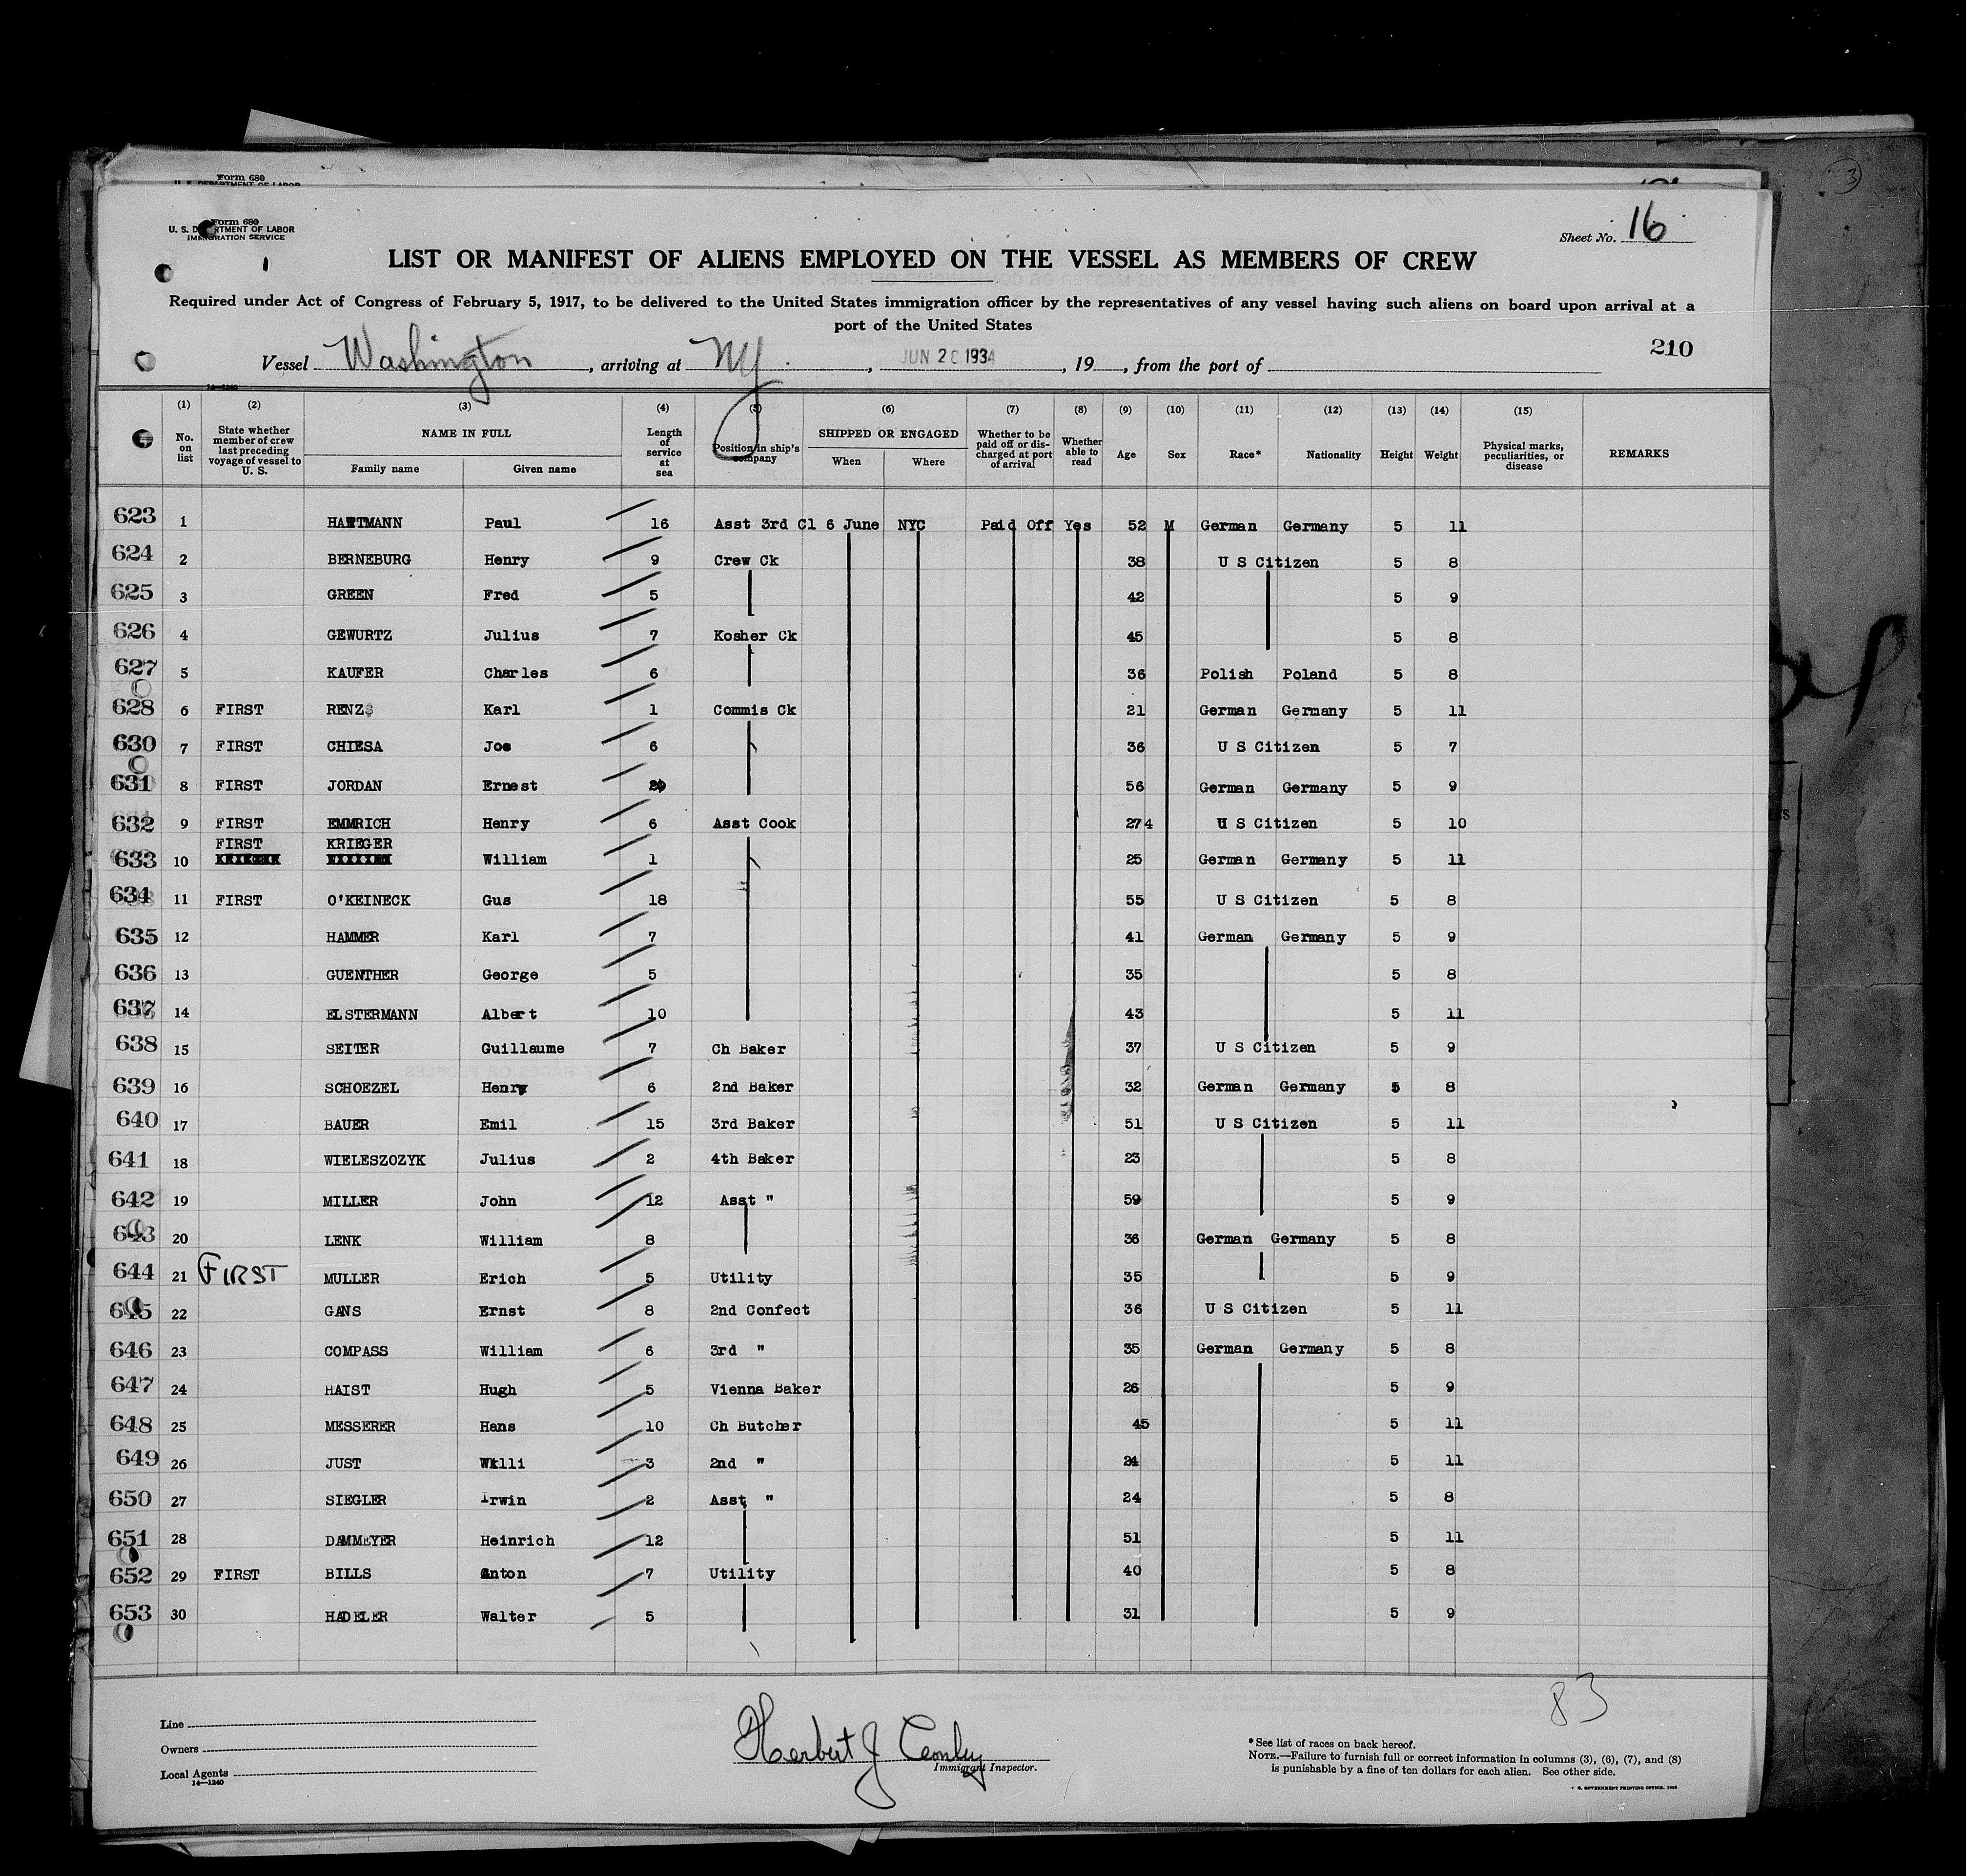 Form 680
U. S. DEPARTMENT OF LABOR
Form 680
U. S. DEPARTMENT OF LABOR
IMMIGRATION SERVICE
Sheet No. 16
LIST OR MANIFEST OF ALIENS EMPLOYED ON THE VESSEL AS MEMBERS OF CREW
Required under Act of Congress of February 5, 1917, to be delivered to the United States immigration officer by the representatives of any vessel having such aliens on board upon arrival at a
port of the United States
210
Vessel Washington, arriving at NY, JUN 28 1934, 19 , from the port of
14—1240
(1) (2) (3) (4) (5) (6) (7) (8) (9) (10) (11) (12) (13) (14) (15)
No. on list
State whether member of crew last preceding voyage of vessel to U. S.
NAME IN FULL
Family name Given name
Length of service at sea
Position in ship's company
SHIPPED OR ENGAGED
When Where
Whether to be paid off or discharged at port of arrival
Whether able to read
Age Sex Race* Nationality Height Weight
Physical marks, peculiarities, or disease
REMARKS
623 1 HARTMANN Paul 16 Asst 3rd Cl 6 June NYC Paid Off Yes 52 M German Germany 5 11
624 2 BERNEBURG Henry 9 Crew Ck 38 U S Citizen 5 8
625 3 GREEN Fred 5 42 5 9
626 4 GEWURTZ Julius 7 Kosher Ck 45 5 8
627 5 KAUFER Charles 6 36 Polish Poland 5 8
628 6 FIRST RENZ Karl 1 Commis Ck 21 German Germany 5 11
630 7 FIRST CHIESA Joe 6 36 U S Citizen 5 7
631 8 FIRST JORDAN Ernest 20 56 German Germany 5 9
632 9 FIRST EMMRICH Henry 6 Asst Cook 274 U S Citizen 5 10
FIRST KRIEGER
633 10 William 1 25 German Germany 5 11
634 11 FIRST O'KEINECK Gus 18 55 U S Citizen 5 8
635 12 HAMMER Karl 7 41 German Germany 5 9
636 13 GUENTHER George 5 35 5 8
637 14 ELSTERMANN Albert 10 43 5 11
638 15 SEITER Guillaume 7 Ch Baker 37 U S Citizen 5 9
639 16 SCHOEZEL Henry 6 2nd Baker 32 German Germany 5 8
640 17 BAUER Emil 15 3rd Baker 51 U S Citizen 5 11
641 18 WIELESZOZYK Julius 2 4th Baker 23 5 8
642 19 MILLER John 12 Asst " 59 5 9
643 20 LENK William 8 36 German Germany 5 8
644 21 FIRST MULLER Erich 5 Utility 35 5 9
645 22 GANS Ernst 8 2nd Confect 36 U S Citizen 5 11
646 23 COMPASS William 6 3rd " 35 German Germany 5 8
647 24 HAIST Hugh 5 Vienna Baker 26 5 9
648 25 MESSERER Hans 10 Ch Butcher 45 5 11
649 26 JUST Willi 3 2nd " 24 5 11
650 27 SIEGLER Irwin 2 Asst " 24 5 8
651 28 DAMMEYER Heinrich 12 51 5 11
652 29 FIRST BILLS Anton 7 Utility 40 5 8
653 30 HADELER Walter 5 31 5 9
83
Line
Owners
Local Agents
14—1240
Herbert J
Immigrant Inspector.
*See list of races on back hereof.
NOTE.—Failure to furnish full or correct information in columns (3), (6), (7), and (8)
is punishable by a fine of ten dollars for each alien. See other side.
GOVERNMENT PRINTING OFFICE